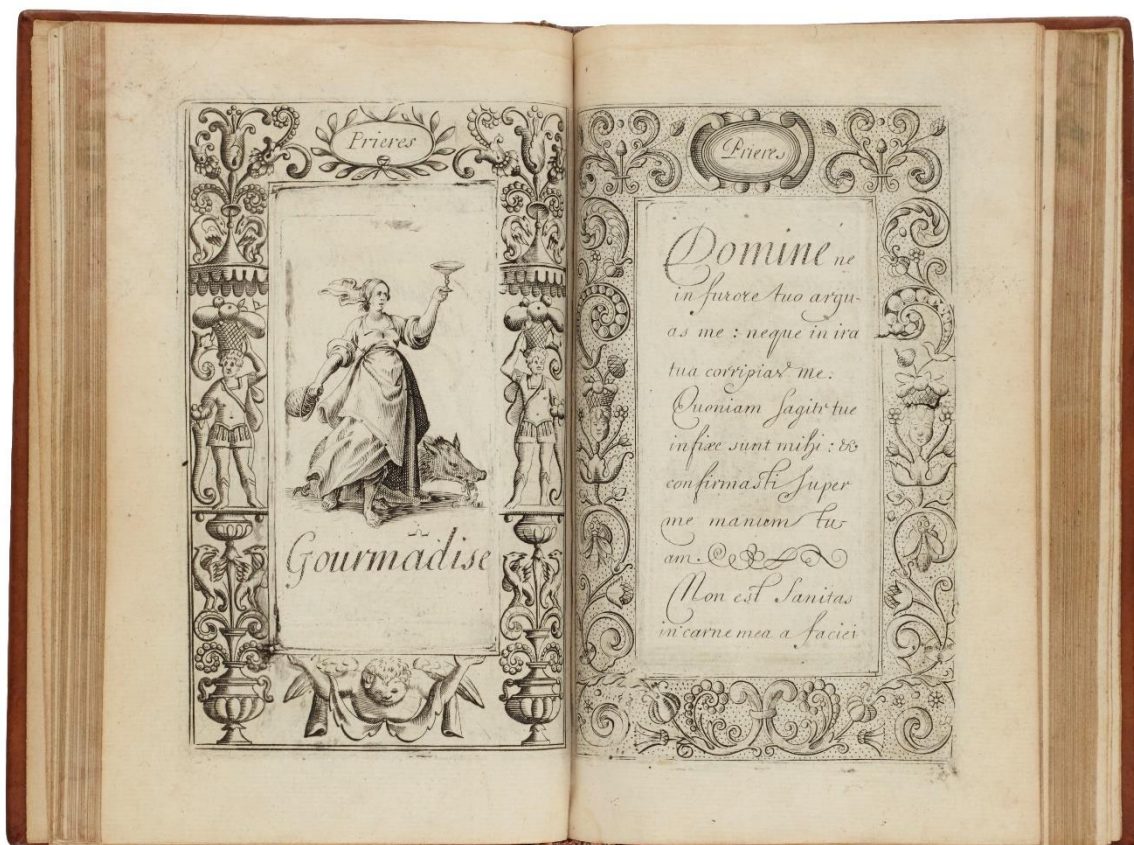 Prieres
Gourmãdise
Prieres
Domine ne
in furore tuo argu-
as me : neque in ira
tua corripias me.
Quoniam sagitte tue
infixe sunt mihi : &
confirmasti super
me manum tu-
am.
Non est sanitas
in carne mea a faciei